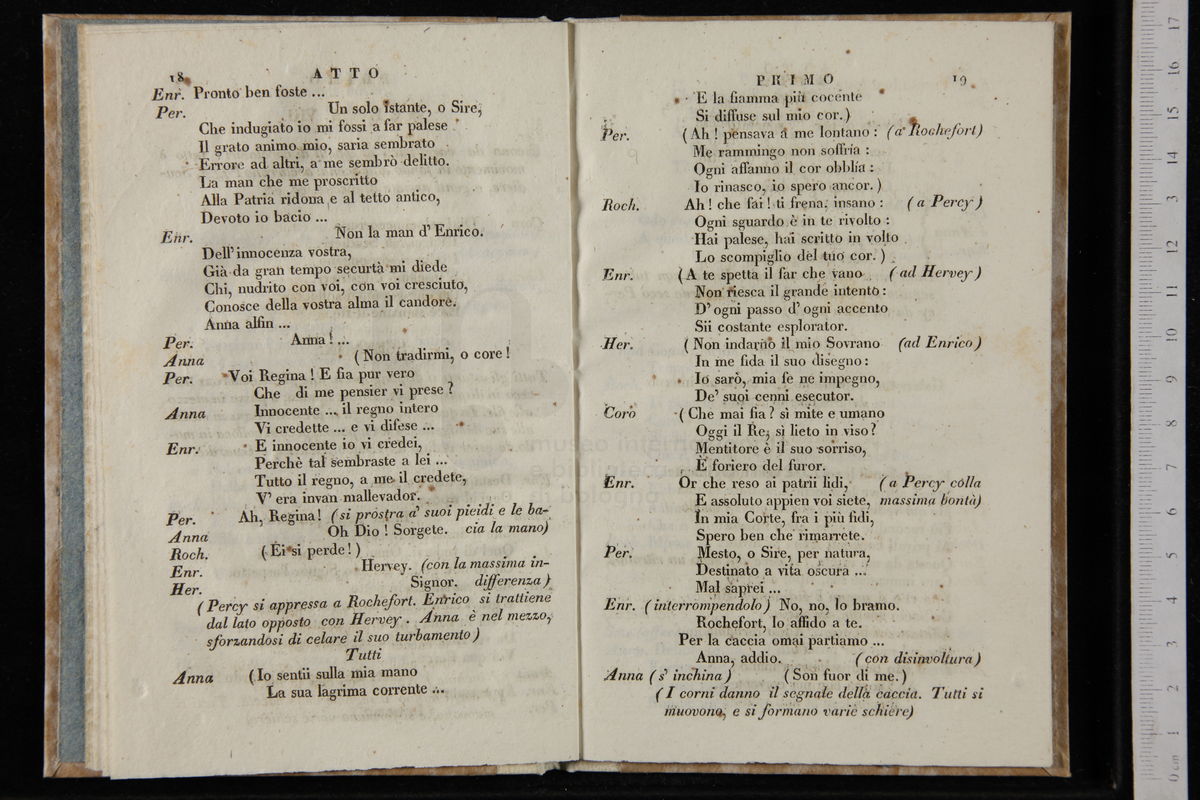 18 ATTO
Enr. Pronto ben foste ...
Per. Un solo istante, o Sire,
Che indugiato io mi fossi a far palese
Il grato animo mio, saria sembrato
Errore ad altri, a me sembrò delitto.
La man che me proscritto
Alla Patria ridona e al tetto antico,
Devoto io bacio ...
Enr. Non la man d' Enrico.
Dell' innocenza vostra,
Già da gran tempo securtà mi diede
Chi, nudrito con voi, con voi cresciuto,
Conosce della vostra alma il candore.
Anna alfin ...
Per. Anna! ...
Anna (Non tradirmi, o core!
Per. Voi Regina! E fia pur vero
Che di me pensier vi prese?
Anna Innocente ... il regno intero
Vi credette ... e vi difese ...
Enr. E innocente io vi credei,
Perchè tal sembraste a lei ...
Tutto il regno, a me il credete,
V' era invan mallevador.
Per. Ah, Regina! (si prostra a' suoi pieidi e le ba-
Anna Oh Dio! Sorgete. cia la mano)
Roch. (Ei si perde!)
Enr. Hervey. (con la massima in-
Her. Signor. differenza)
(Percy si appressa a Rochefort. Enrico si trattiene
dal lato opposto con Hervey. Anna è nel mezzo,
sforzandosi di celare il suo turbamento)
Tutti
Anna (Io sentii sulla mia mano
La sua lagrima corrente ...
PRIMO 19
E la fiamma più cocente
Si diffuse sul mio cor.)
Per. (Ah! pensava a me lontano: (a Rochefort)
Me rammingo non soffria:
Ogni affanno il cor obblía:
Io rinasco, io spero ancor.)
Roch. Ah! che fai! ti frena, insano: (a Percy)
Ogni sguardo è in te rivolto:
Hai palese, hai scritto in volto
Lo scompiglio del tuo cor.)
Enr. (A te spetta il far che vano (ad Hervey)
Non riesca il grande intento:
D' ogni passo d' ogni accento
Sii costante esplorator.
Her. (Non indarno il mio Sovrano (ad Enrico)
In me fida il suo disegno:
Io sarò, mia fe ne impegno,
De' suoi cenni esecutor.
Coro (Che mai fia? sì mite e umano
Oggi il Re, sì lieto in viso?
Mentitore è il suo sorriso,
È foriero del furor.
Enr. Or che reso ai patrii lidi, (a Percy colla
E assoluto appien voi siete, massima bontà)
In mia Corte, fra i più fidi,
Spero ben che rimarrete.
Per. Mesto, o Sire, per natura,
Destinato a vita oscura ...
Mal saprei ...
Enr. (interrompendolo) No, no, lo bramo.
Rochefort, lo affido a te.
Per la caccia omai partiamo ...
Anna, addio. (con disinvoltura)
Anna (s' inchina) (Son fuor di me.)
(I corni danno il segnale della caccia. Tutti si
muovono, e si formano varie schiere)